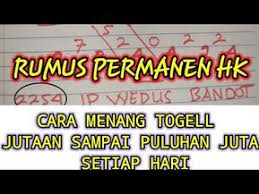 7 5 2 0 2 2
RUMUS PERMANEN HK
2254 ID WEDUS BANDOT
CARA MENANG TOGELL
JUTAAN SAMPAI PULUHAN JUTA
SETIAP HARI